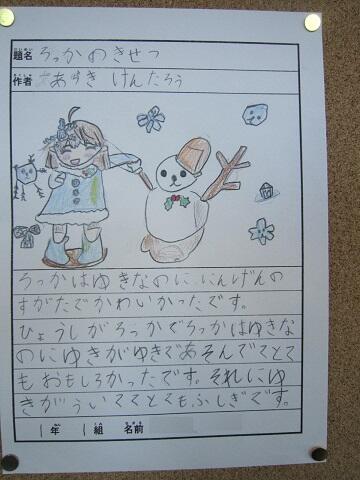 だいめい
題名 ろっかのきせつ
さくしゃ
作者 あずき けんたろう
ろっかはゆきなのに、にんげんの
すがたでかわいかったです。
ひょうしがろっかでろっかはゆきな
のにゆきがゆきであそんでてとて
もおもしろかったです。それにゆ
きがういててとてもふしぎです。
1年 1組 名前
ねん くみ なまえ